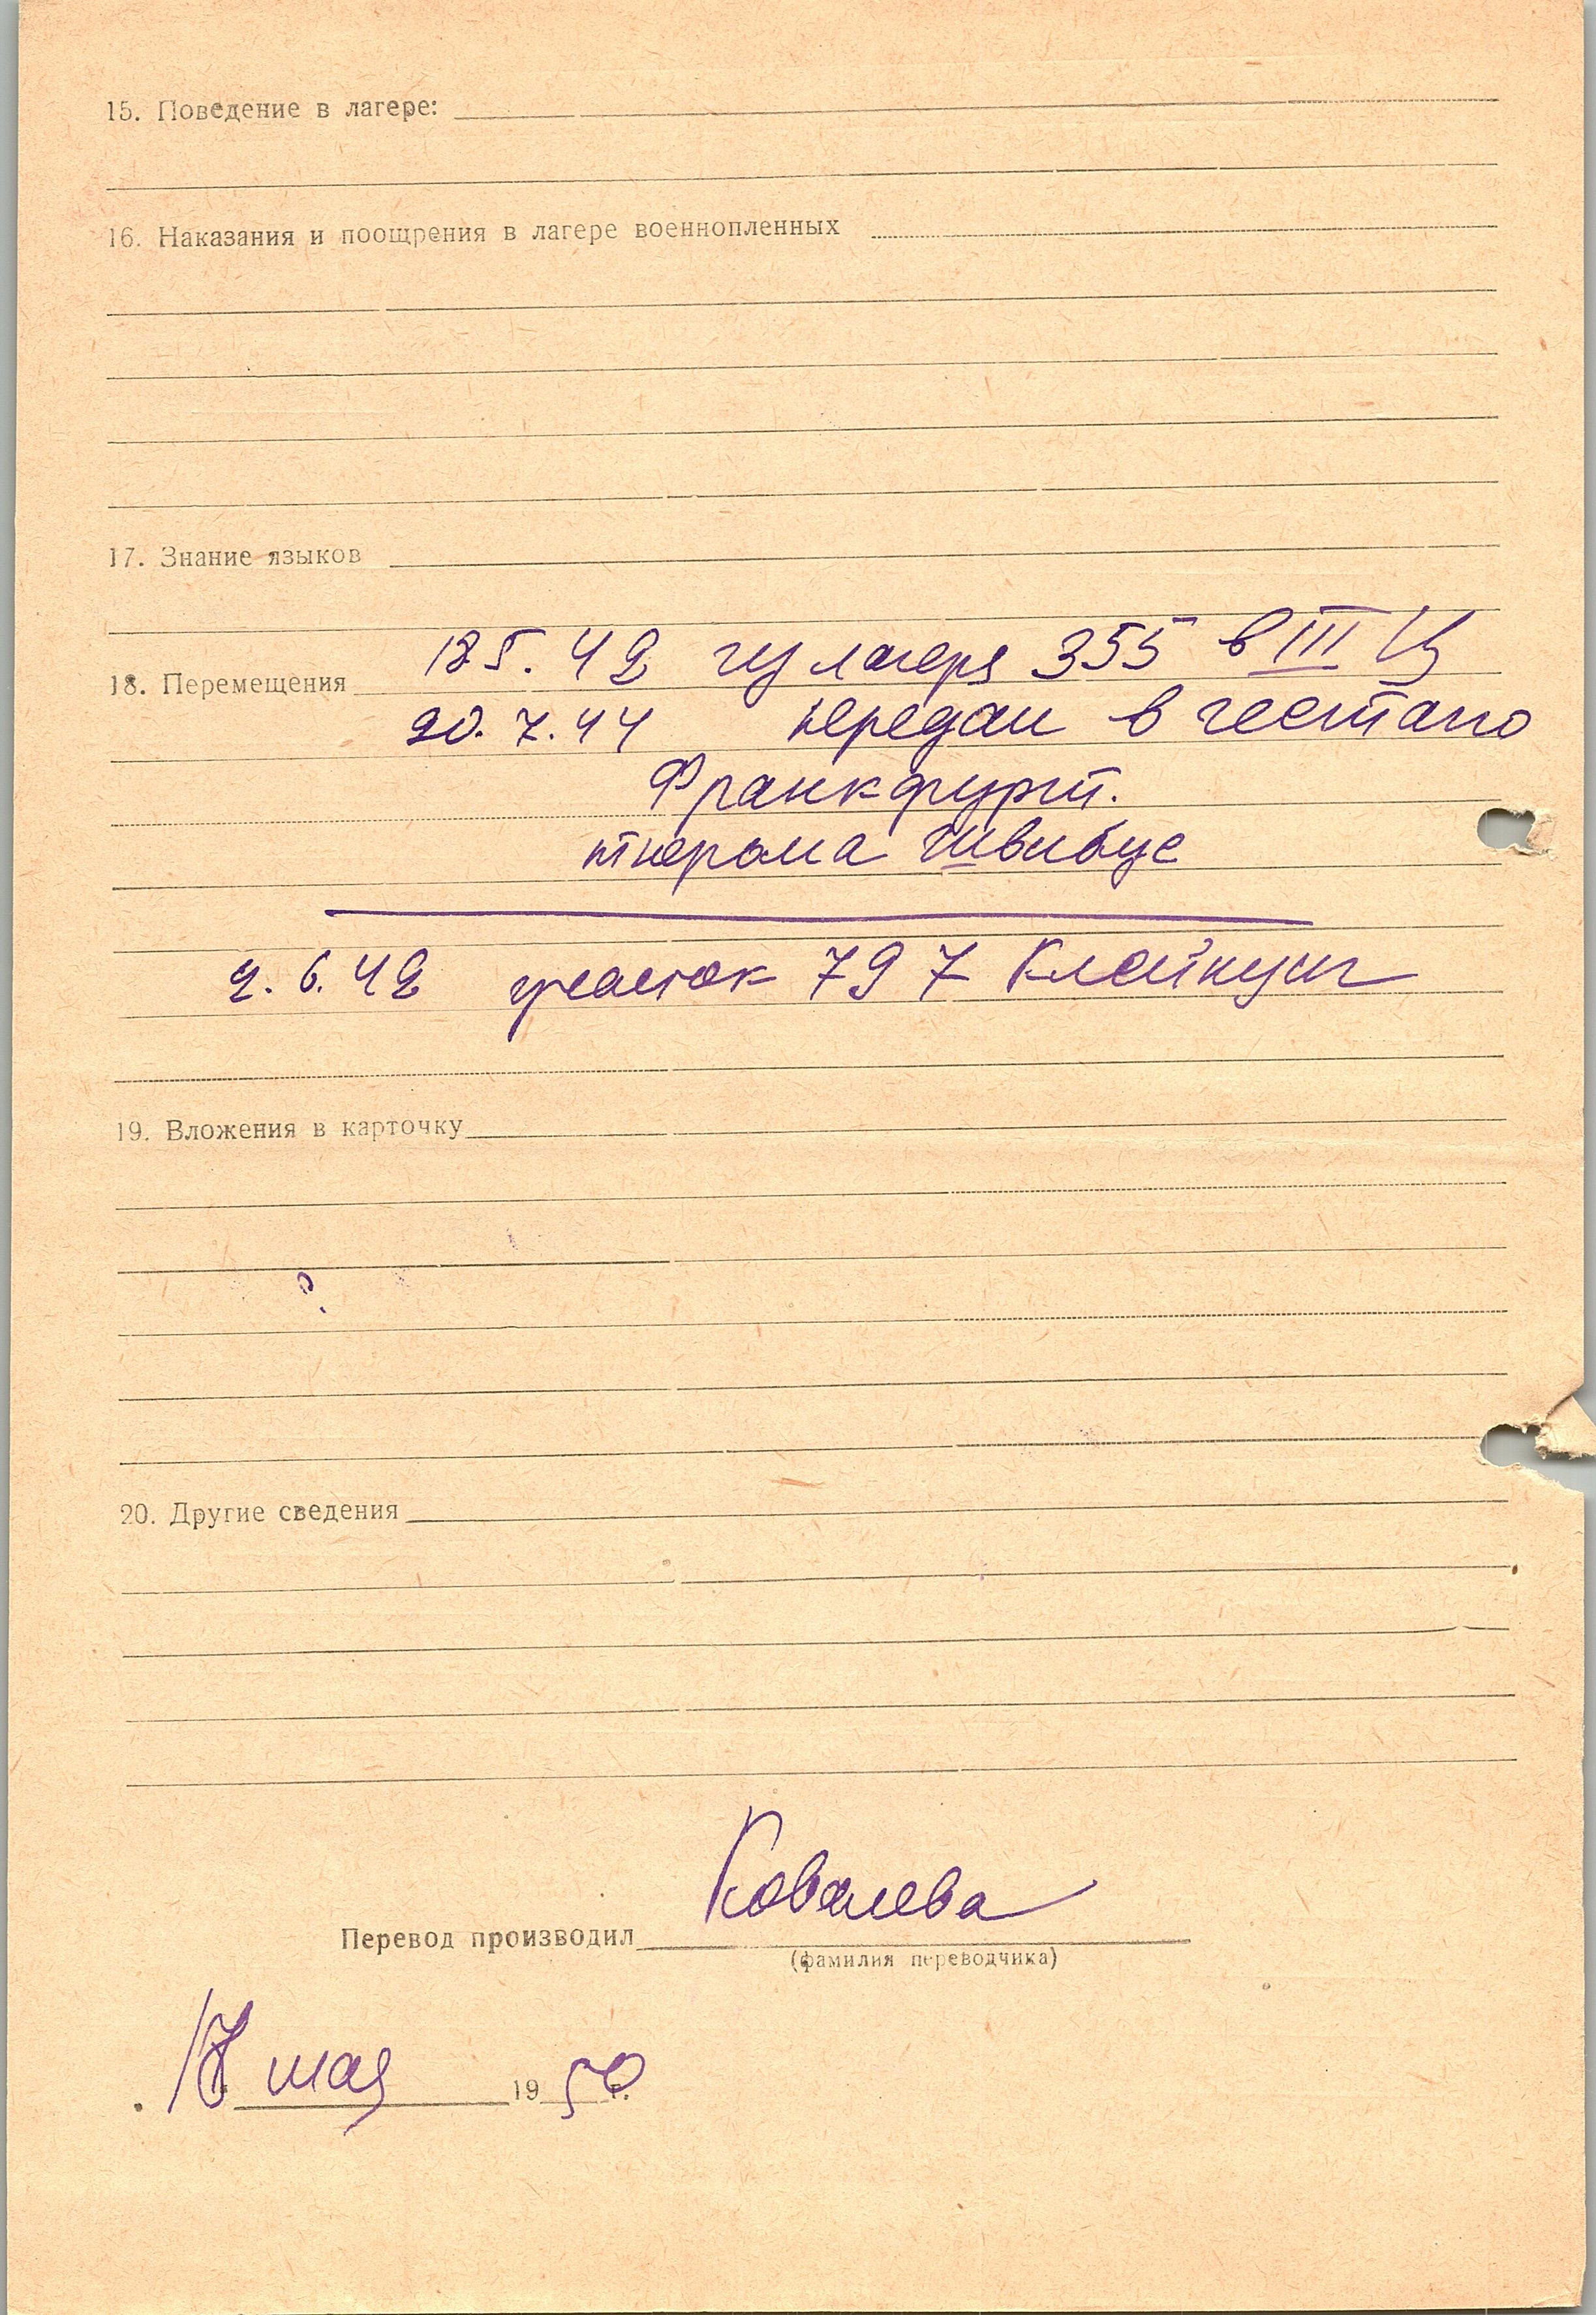 15. Поведение в лагере:
16. Наказания и поощрения в лагере военнопленных
17. Знание языков
18. Перемещения 125. 42 из лагеря 355 в III Ц
20. 7. 44 передан в гестапо
Франкфурт.
тюрьма Швибус
2. 6. 42 участок 797
19. Вложения в карточку
20. Другие сведения
Ковалева
Перевод производил
(фамилия переводчика)
мая 1950 г.